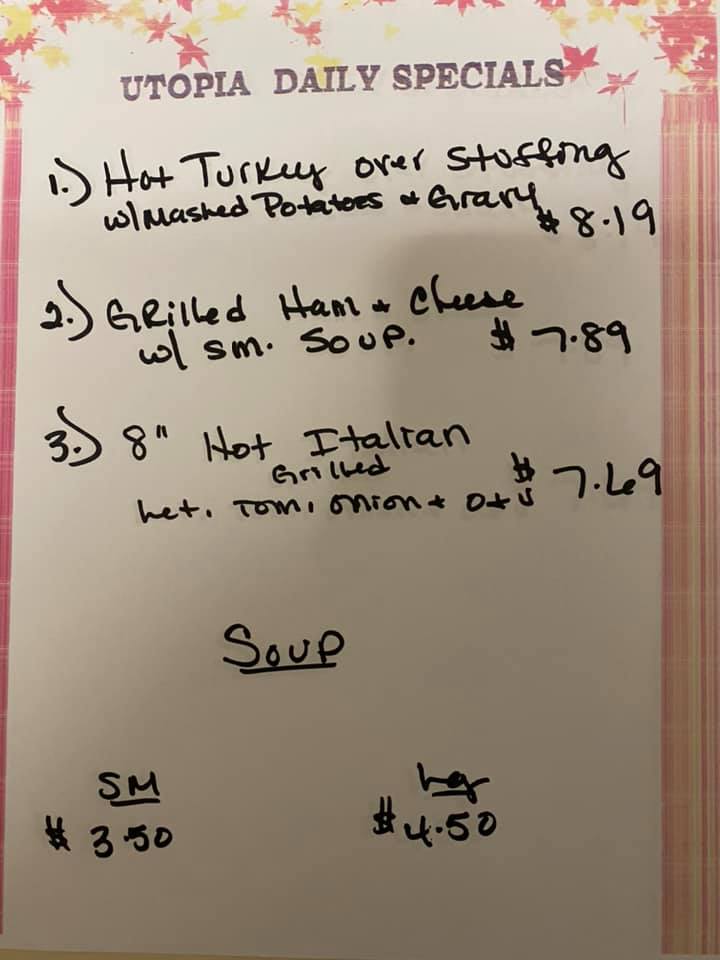 UTOPIA DAILY SPECIALS
1.) Hot Turkey over Stuffing
w/Mashed Potatoes & Gravy
$8.19
2.) Grilled Ham & Cheese
w/ sm. Soup. $7.89
3.) 8" Hot Italian
Grilled
Let. Tom, onion & O+V $7.69
Soup
SM Lg
$3.50 $4.50